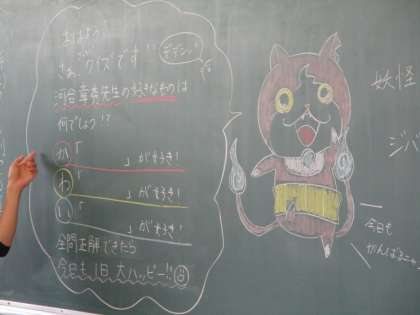 おはよう!
さぁ、クイズです!!
デデンッ!
河合 先生の好きなものは
何でしょう!?
か「　　　」がすき!
わ「　　　」がすき!
い「　　　」がすき!
全問正解できたら
今日も1日大ハッピー!!
妖怪
ジバ
今日も
がんばるニャ